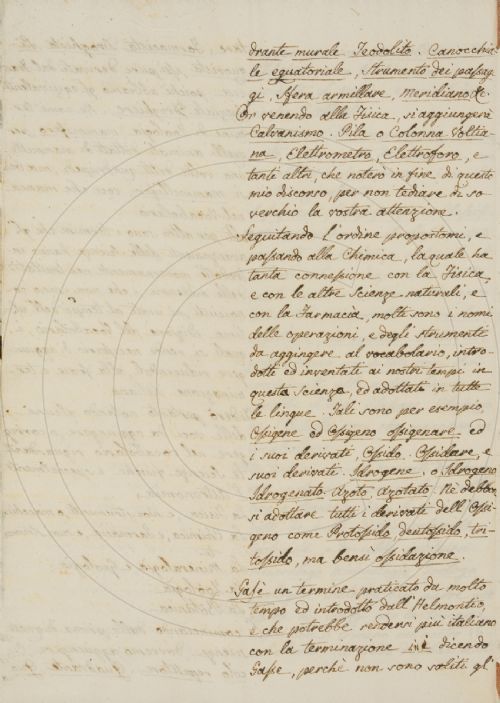 drante murale Teodolito. Canocchia-
le equatoriale, strumento dei passag-
gi, Sfera armillare, Meridiano &c.
Or venendo alla Fisica, si aggiungerà
Galvanismo. Pila o Colonna Voltia-
na, Elettrometro, Elettroforo, e
tanti altri, che noterò in fine di questo
mio discorso, per non tediare di so-
verchio la vostra attenzione.
Seguitando l'ordine propostomi, e
passando alla Chimica, la quale ha
tanta connessione con la Fisica,
e con le altre scienze naturali, e
con la Farmacia, molti sono i nomi
delle operazioni, e degli strumenti
da aggingere al vocabolario, intro-
dotti ed inventati ai nostri tempi in
questa scienza, ed adottati in tutte
le lingue. Tali sono per esempio,
Ossigene od Ossigeno ossigenare ed
i suoi derivati, Ossido. Ossidare, e
suoi derivati. Idrogene. o Idrogeno
Idrogenato Azoto, Azotato. Nè debbon
si adottare tutti i derivati dell'Ossi-
geno come Protossido, deutossido, tri-
tossido, ma bensì ossidazione.
Gas è un termine praticato da molto
tempo ed introdotto dall'Helmontio,
e che potrebbe rendersi più italiano
con la terminazione dicendo
Gasse, perchè non sono soliti gl'